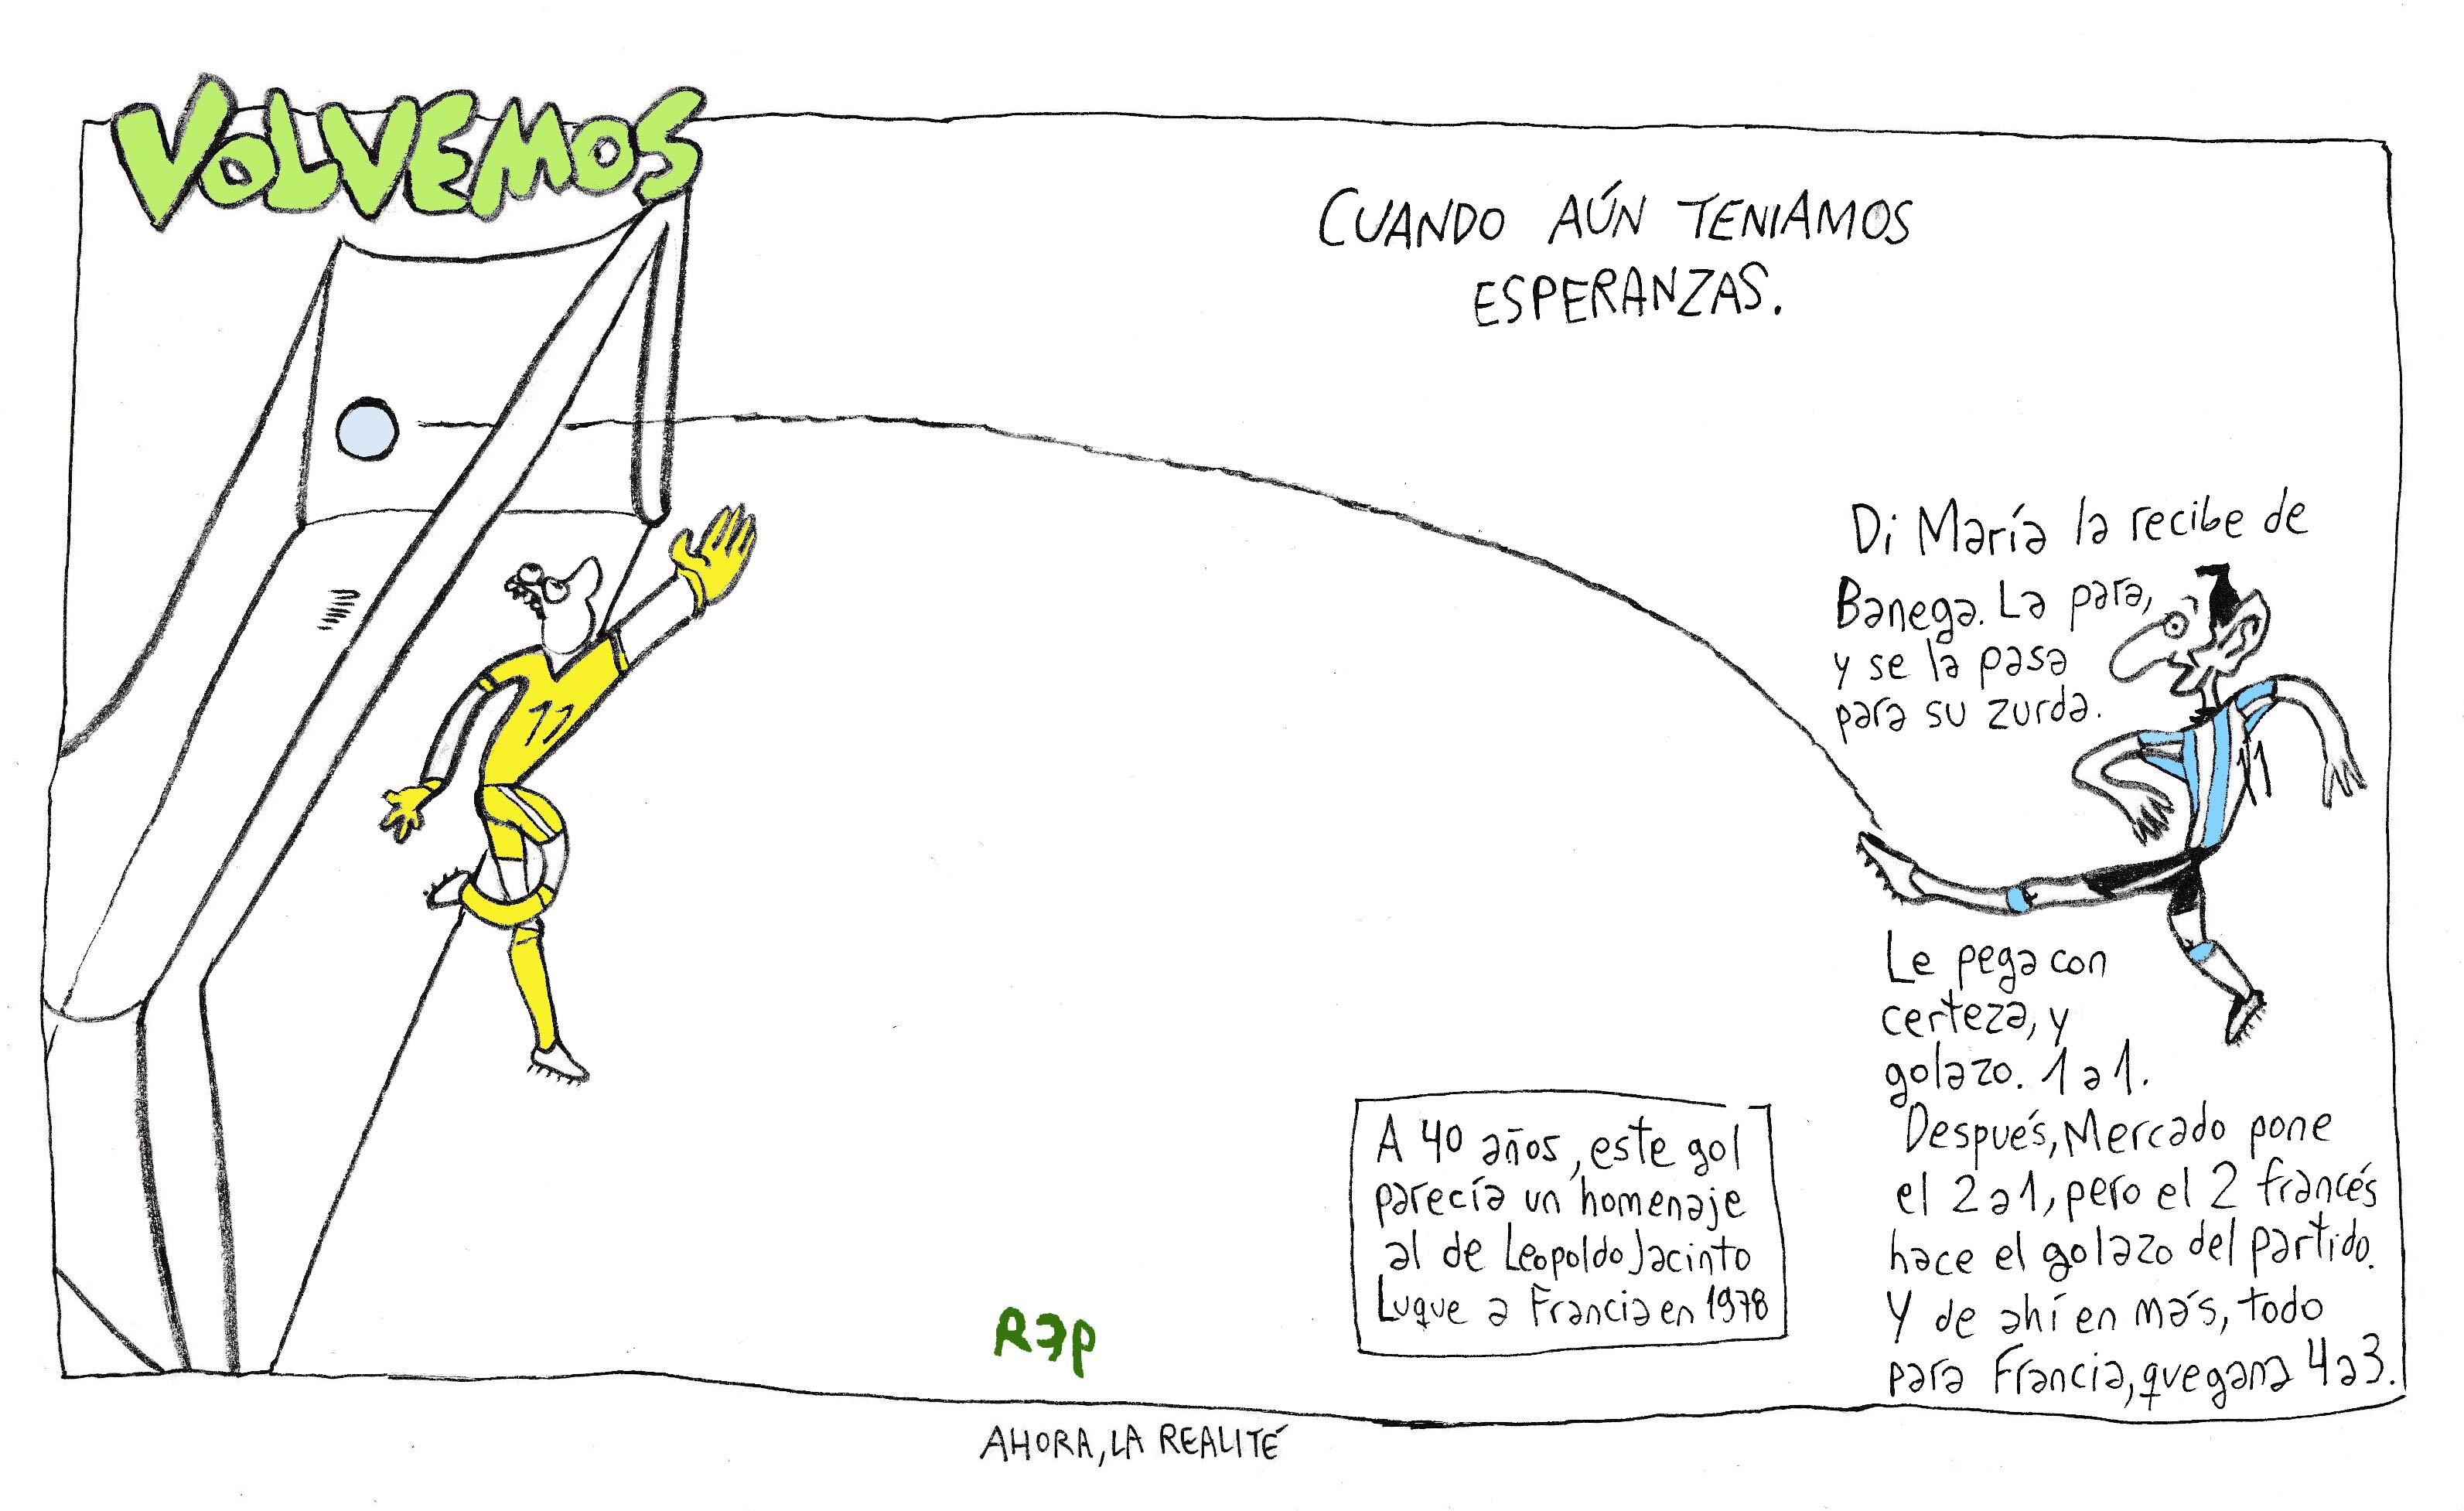 VOLVEMOS
CUANDO AÚN TENIAMOS
ESPERANZAS.
Di María la recibe de
Banega. La para,
y se la pasa
para su zurda.
11
11
Le pega con
certeza, y
golazo. 1 a 1.
Después, Mercado pone
el 2 a 1, pero el 2 francés
hace el golazo del partido.
Y de ahí en más, todo
para Francia, que gana 4 a 3.
A 40 años, este gol
parecía un homenaje
al de Leopoldo Jacinto
Luque a Francia en 1978
Rep
AHORA, LA REALITÉ